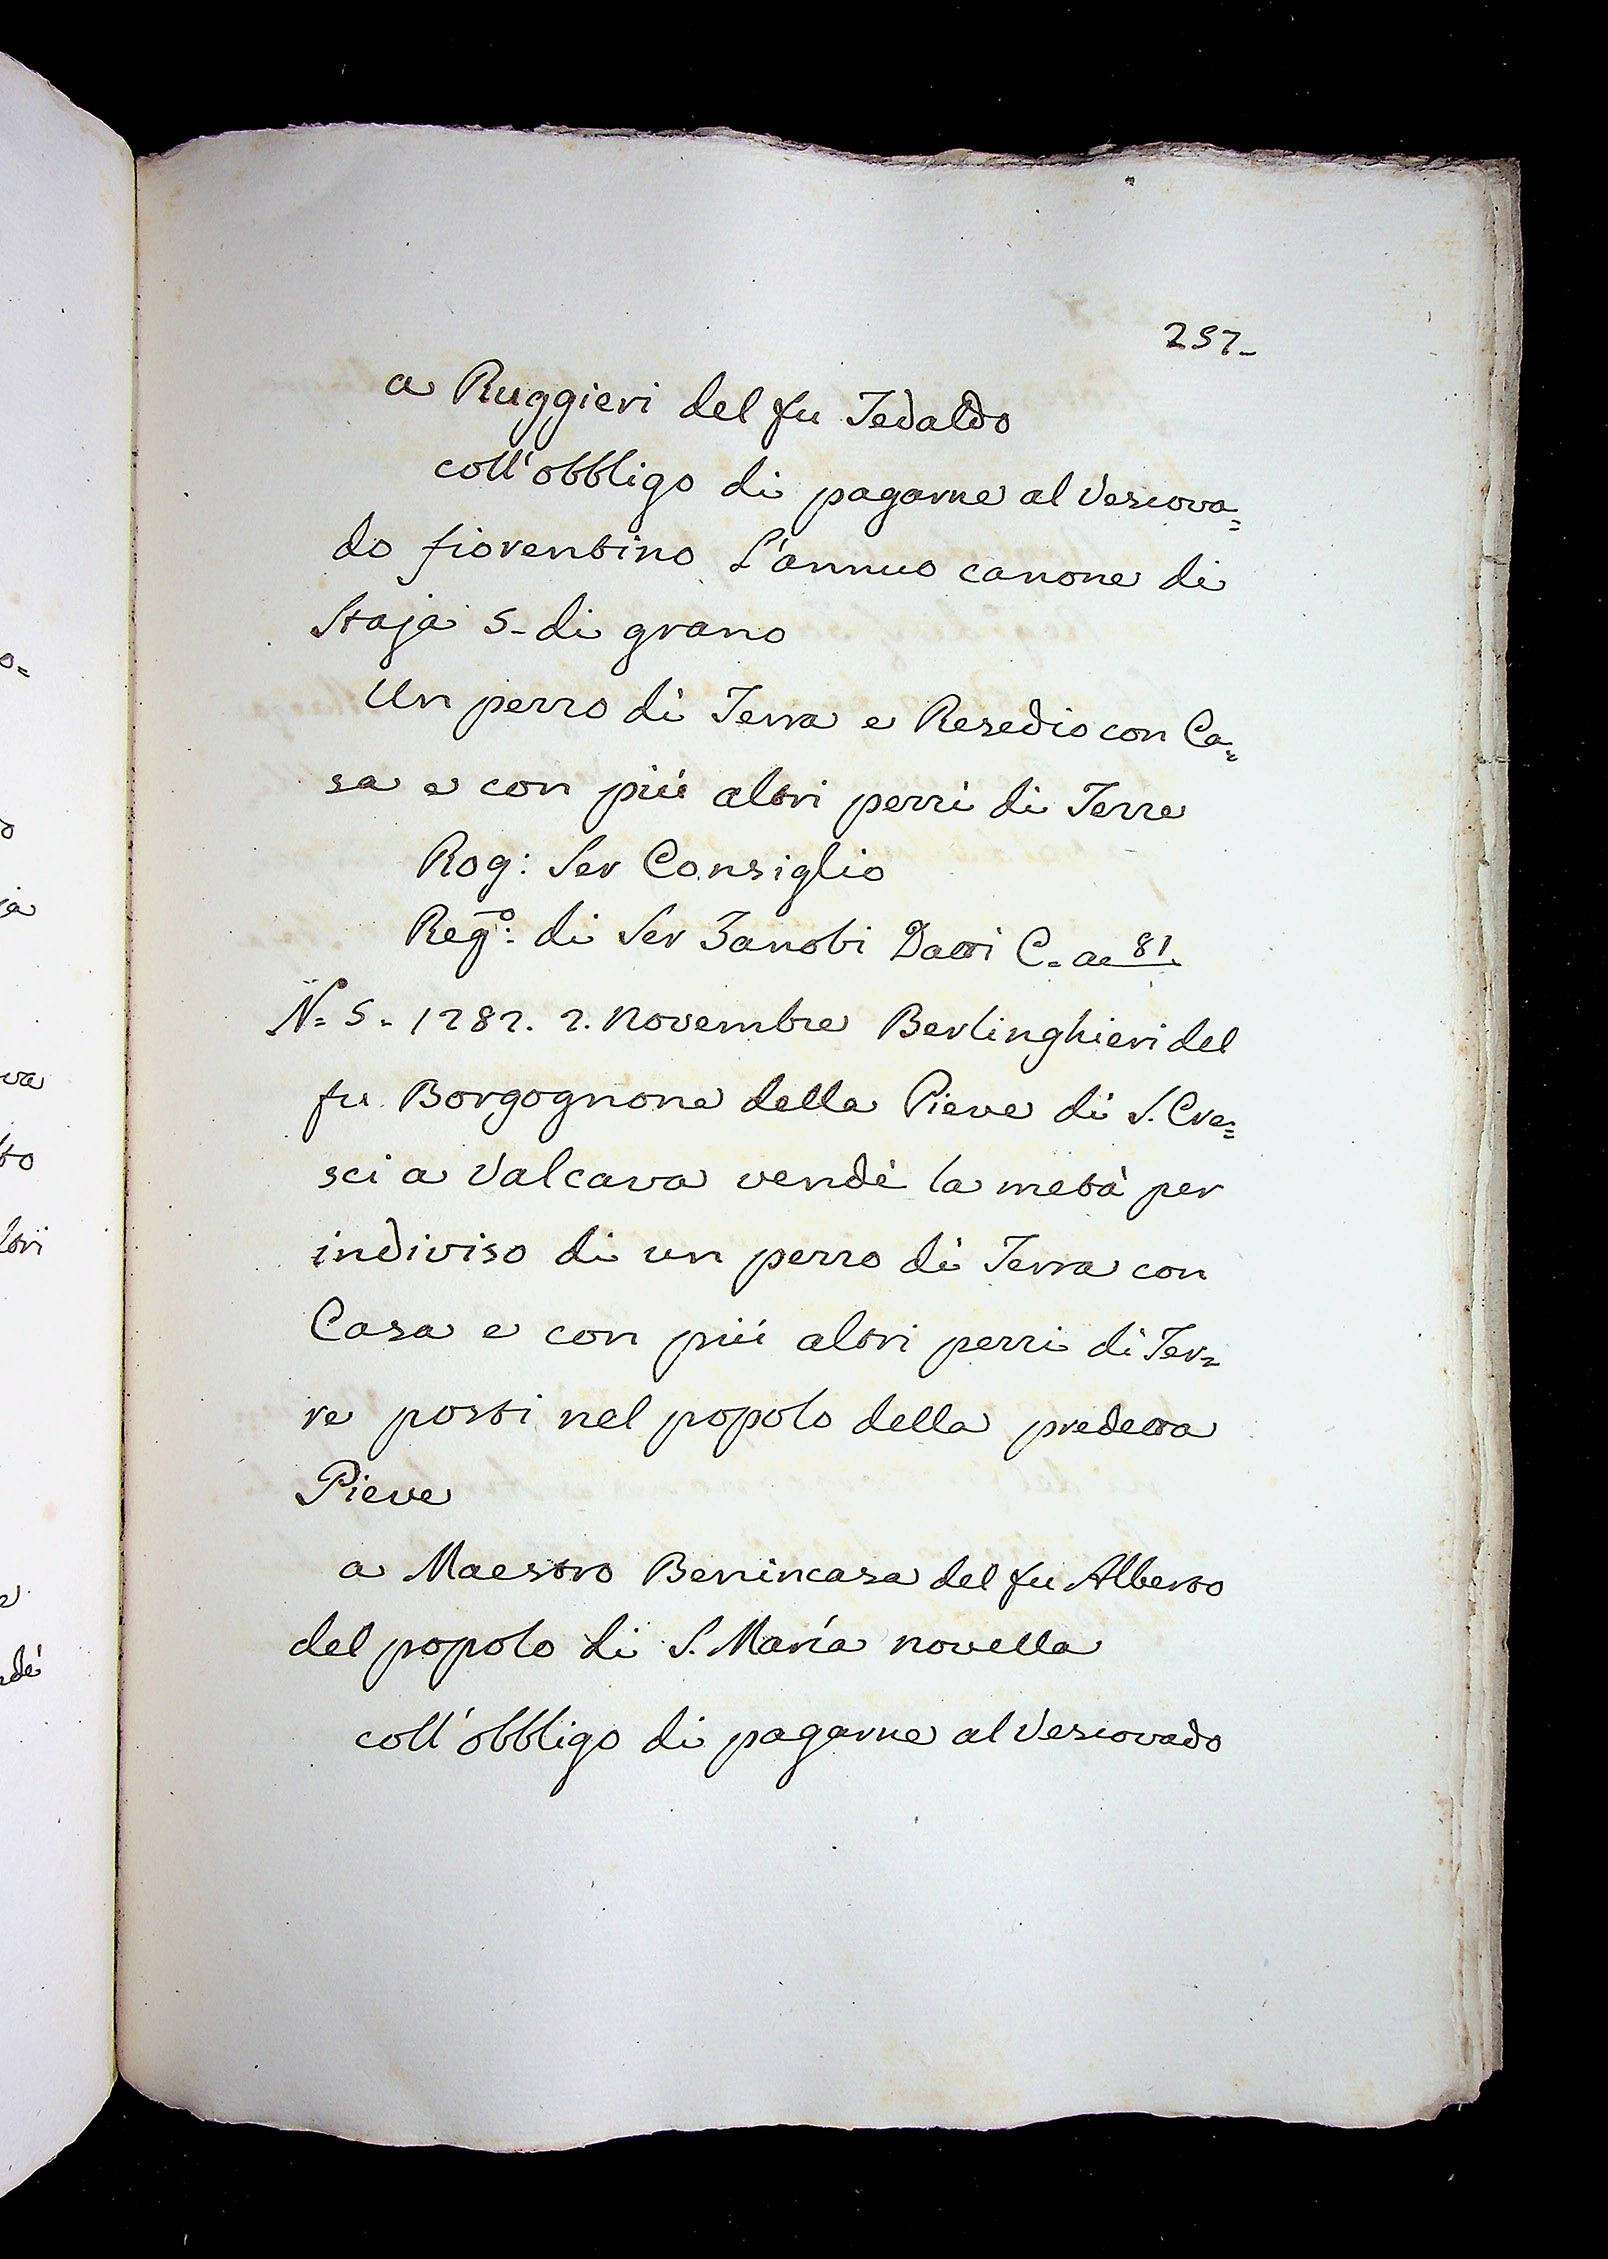 257-
a Ruggieri del fu Tedaldo
coll'obbligo di pagarne al Vescova=
do fiorentino L'annuo canone di
Staja 5- di grano
Un pezzo di Terra e Resedio con Ca=
sa e con più altri pezzi di Terre
Rog: Ser Consiglio
Reg.o: di Ser Zanobi Datti C. a 81.
N= 5- 1282. 2. Novembre Berlinghieri del
fu Borgognone della Pieve di S. Cre=
sci a Valcava vendè la metà per
indiviso di un pezzo di Terra con
Casa e con più altri pezzi di Ter=
re posti nel popolo della predetta
Pieve
a Maestro Benincasa del fu Alberto
del popolo di S. Maria novella
coll'obbligo di pagarne al Vescovado
o=
o
ja
va
to
ltri
e
ndè